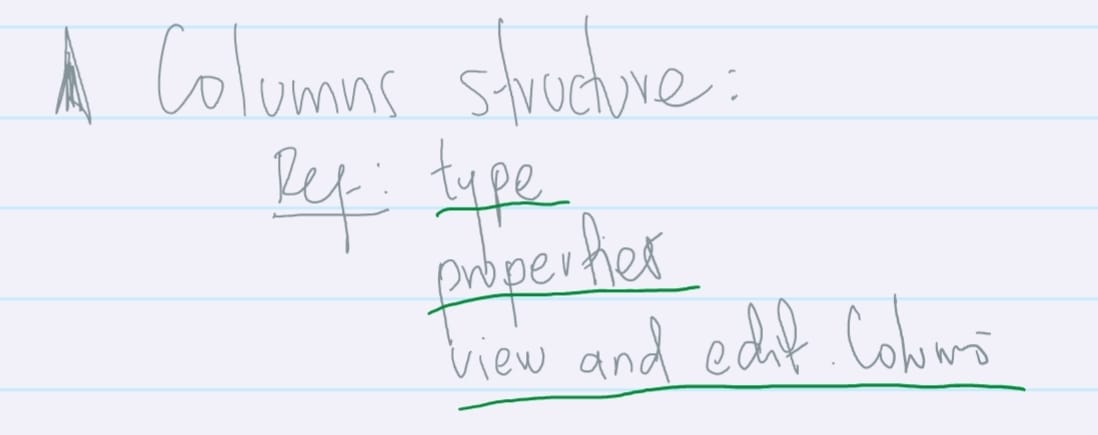 A Columns structure:
Ref: type
properties
view and edit. Columns